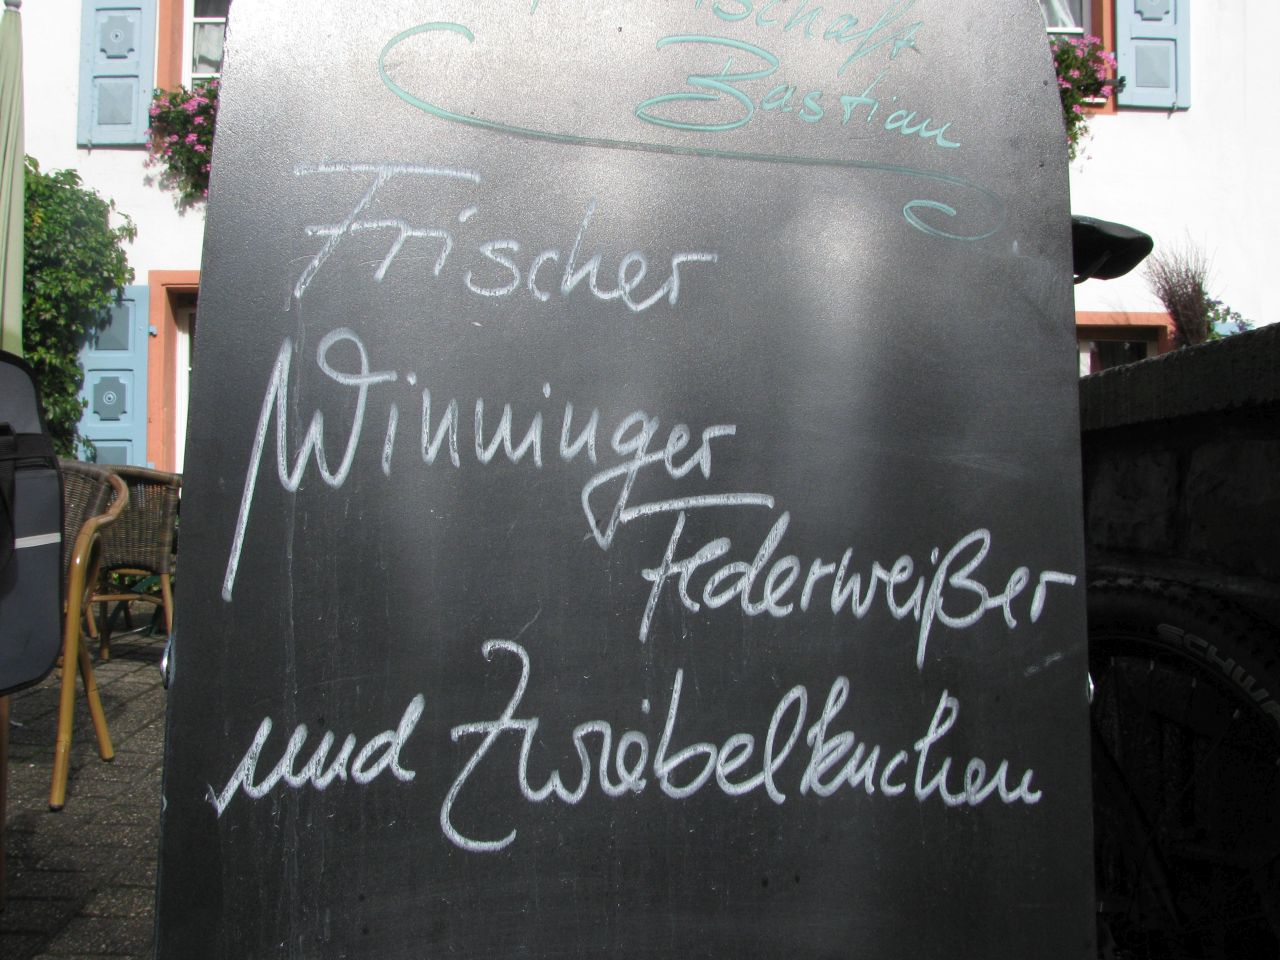 Bastian
Frischer
Winninger
Federweißer
und Zwiebelkuchen